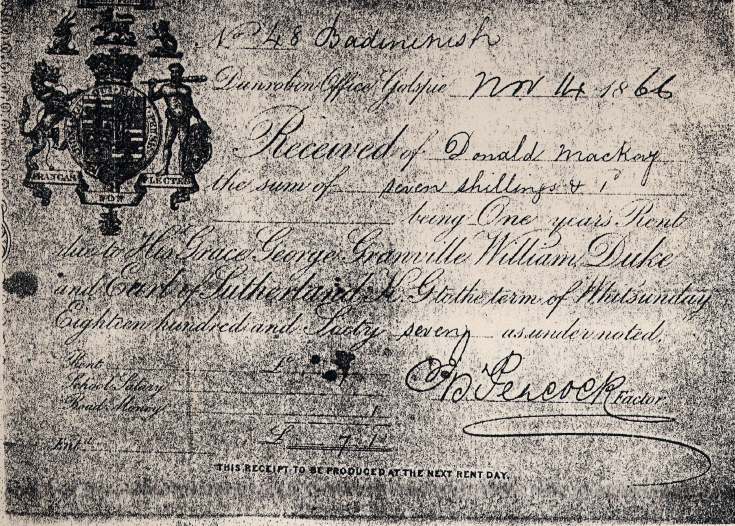 No 48 Badininish
Dunrobin Office Golspie Nov 14 1866
Received of Donald Mackay
the sum of seven shillings & 1d
being One years Rent
due to His Grace George Granville William, Duke
and Earl of Sutherland K.G. to the term of Whitsunday
Eighteen hundred and Sixty seven as under noted.
FRANGAS NON FLECTES
Rent £ 7
School Salary
Road Money 1
Entd. £ 7 1
Peacock Factor
THIS RECEIPT TO BE PRODUCED AT THE NEXT RENT DAY.